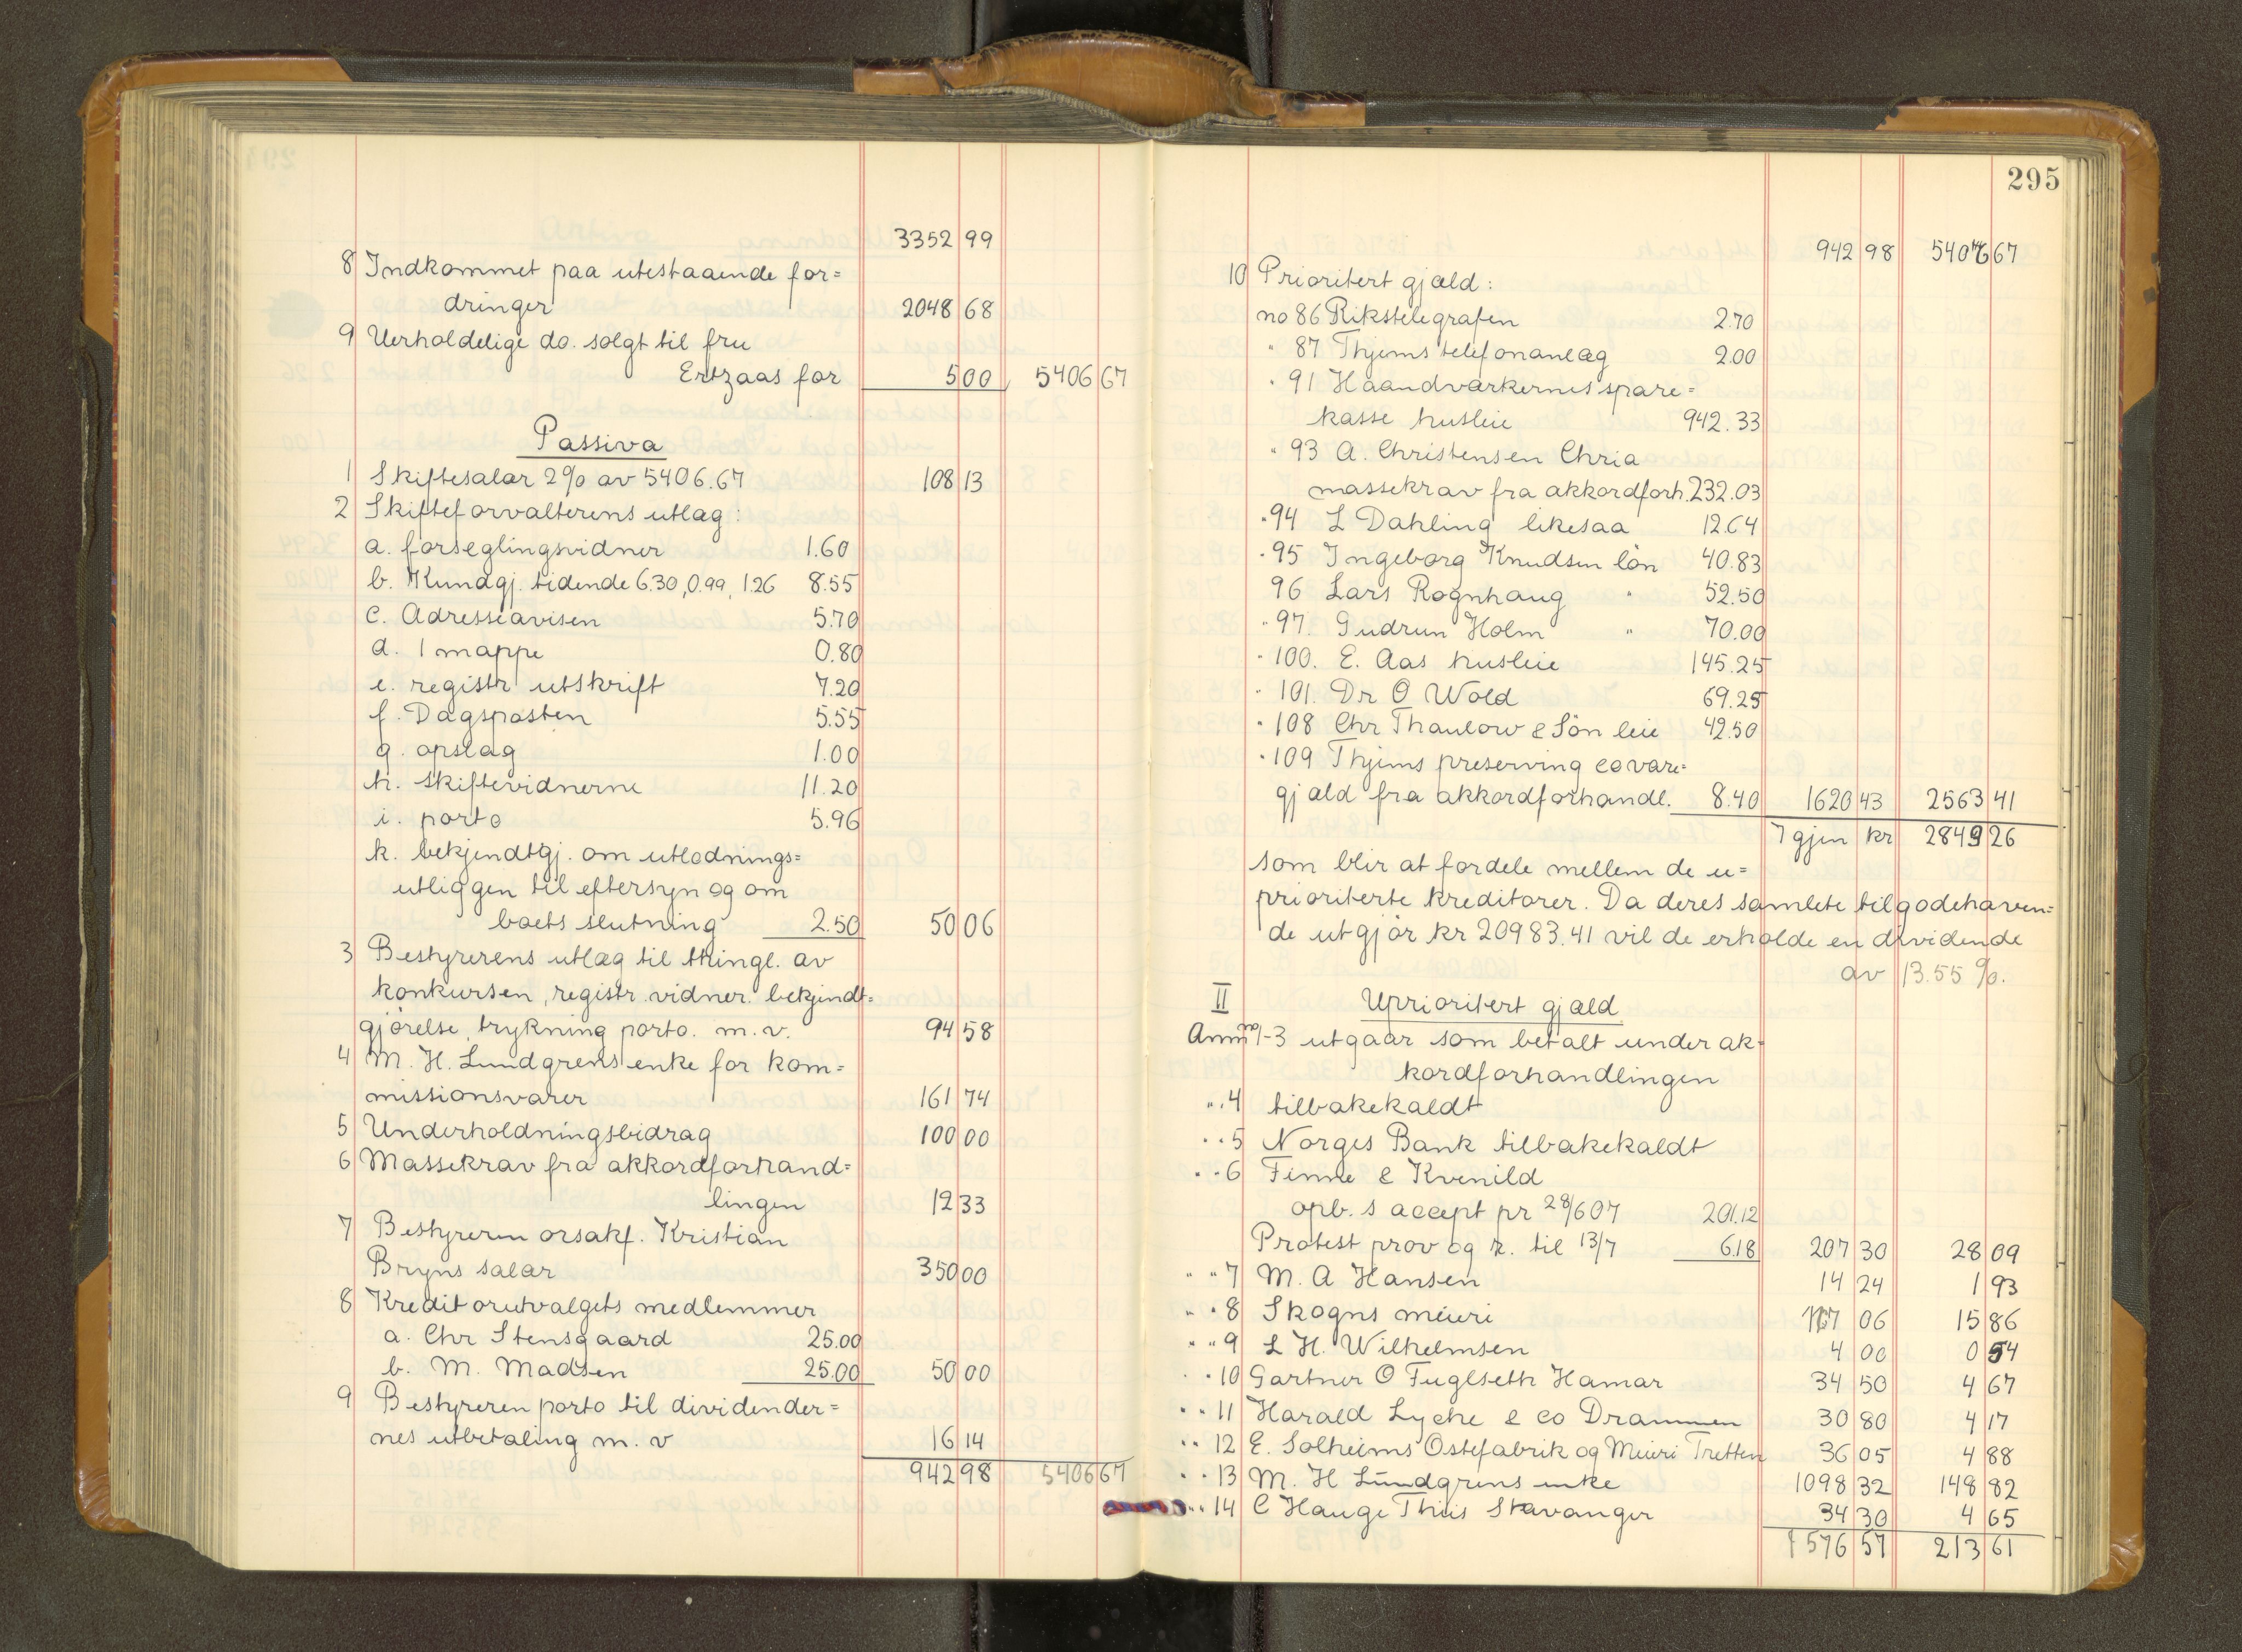 3352 99
8 Indkommet paa utestaaende for=
dringer 2048 68
9 Uerholdelige do. solgt til fru
Ertzaas for 5 00 5406 67
Passiva
1 Skiftesalær 2% av 5406.67 108 13
2 Skifteforvalterens utlæg:
a. forseglingsvidner 1.60
b. Kundgj. tidende 6.30, 0.99, 1.26 8.55
c. Adresseavisen 5.70
d. 1 mappe 0.80
e. registr utskrift 7.20
f. Dagsposten 5.55
g. opslag 1.00
h. skiftevidnerne 11.20
i. porto 5.96
k. bekjendtgj. om utlodnings=
utliggen til eftersyn og om
boets slutning 2.50 50 06
3 Bestyrerens utlæg til thingl. av
konkursen, registr. vidner. bekjendt=
gjörelse, trykning porto. m. v. 94 58
4 M. H. Lundgrens enke for kom=
missionsvarer 161 74
5 Underholdningsbidrag 100 00
6 Massekrav fra akkordforhand=
lingen 12 33
7 Bestyreren orsakf. Kristian
Bryns salær 350 00
8 Kreditorutvalgets medlemmer
a. Chr Stensgaard 25.00
b. M. Madsen 25.00 50 00
9 Bestyreren porto til dividender=
nes utbetaling m. v 16 14
942 98 5406 67
295
942 98 5406 67
10 Prioritert gjæld:
no 86 Rikstelegrafen 2.70
" 87 Thjems telefonanlæg 2.00
" 91 Haandværkernes spare=
kasse husleie 942.33
" 93 A. Christensen Chria
massekrav fra akkordforh. 232.03
" 94 L Dahling likesaa 12.64
" 95 Ingeborg Knudsen lön 40.83
96 Lars Rognhaug " 52.50
" 97. Gudrun Holm " 70.00
" 100. E. Aas husleie 145.25
" 101. Dr O Wold 69.25
" 108 Chr Thaulow & Sön leie 42.50
" 109 Thjems preserving co vare=
gjæld fra akkordforhandl. 8.40 1620 43 2563 41
Igjen kr 2849 26
som blir at fordele mellem de u=
prioriterte kreditorer. Da deres samlete tilgodehaven=
de utgjör kr 20983.41 vil de erholde en dividende
av 13.55 %.
II Uprioritert gjæld
Anm no 1-3 utgaar som betalt under ak=
kordforhandlingen
" " 4 tilbakekaldt
" " 5 Norges Bank tilbakekaldt
" " 6 Finne & Kvenild
opb. s accept pr 28/6 07 201.12
Protest prov og r. til 13/7 6.18 207 30 28 09
" " 7 M. A Hansen 14 24 1 93
" " 8 Skogns meieri 117 06 15 86
" " 9 L H. Wilhelmsen 4 00 0 54
" " 10 Gartner O Fuglseth Hamar 34 50 4 67
" " 11 Harald Lyche & co Drammen 30 80 4 17
" " 12 E. Solheims Ostefabrik og Meieri Tretten 36 05 4 88
" " 13 M. H Lundgrens enke 1098 32 148 82
" " 14 C Hauge Thiis Stavanger 34 30 4 65
1576 57 213 61